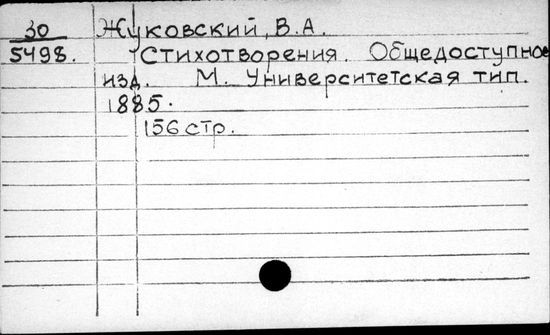 30 Жуковский, В.А.
5498. Стихотворения. Общедоступное
изд. М. Университетская тип.
1885.
156 стр.